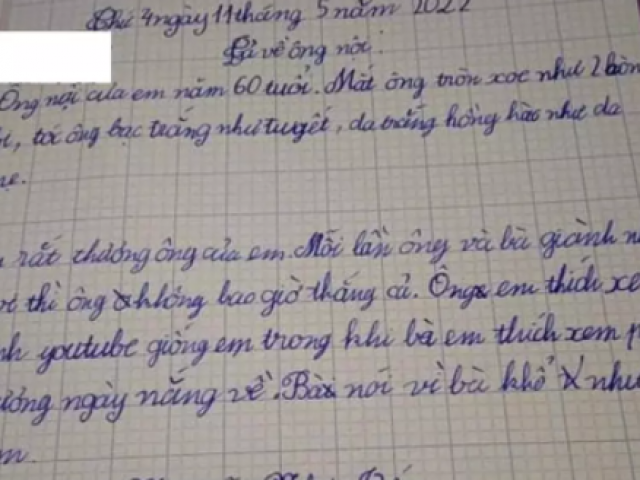 Thứ 4 ngày 11 tháng 5 năm 2022
Tả về ông nội.
Ông nội của em năm 60 tuổi. Mắt ông tròn xoe như 2 hòn
tóc ông bạc trắng như tuyết, da trắng hồng hào như da
rất thương ông của em. Mỗi lần ông và bà giành
thì ông không bao giờ thắng cả. Ông em thích xe
youtube giống em trong khi bà em thích xem p
ngày nắng về. Bà nói vì bà khổ như